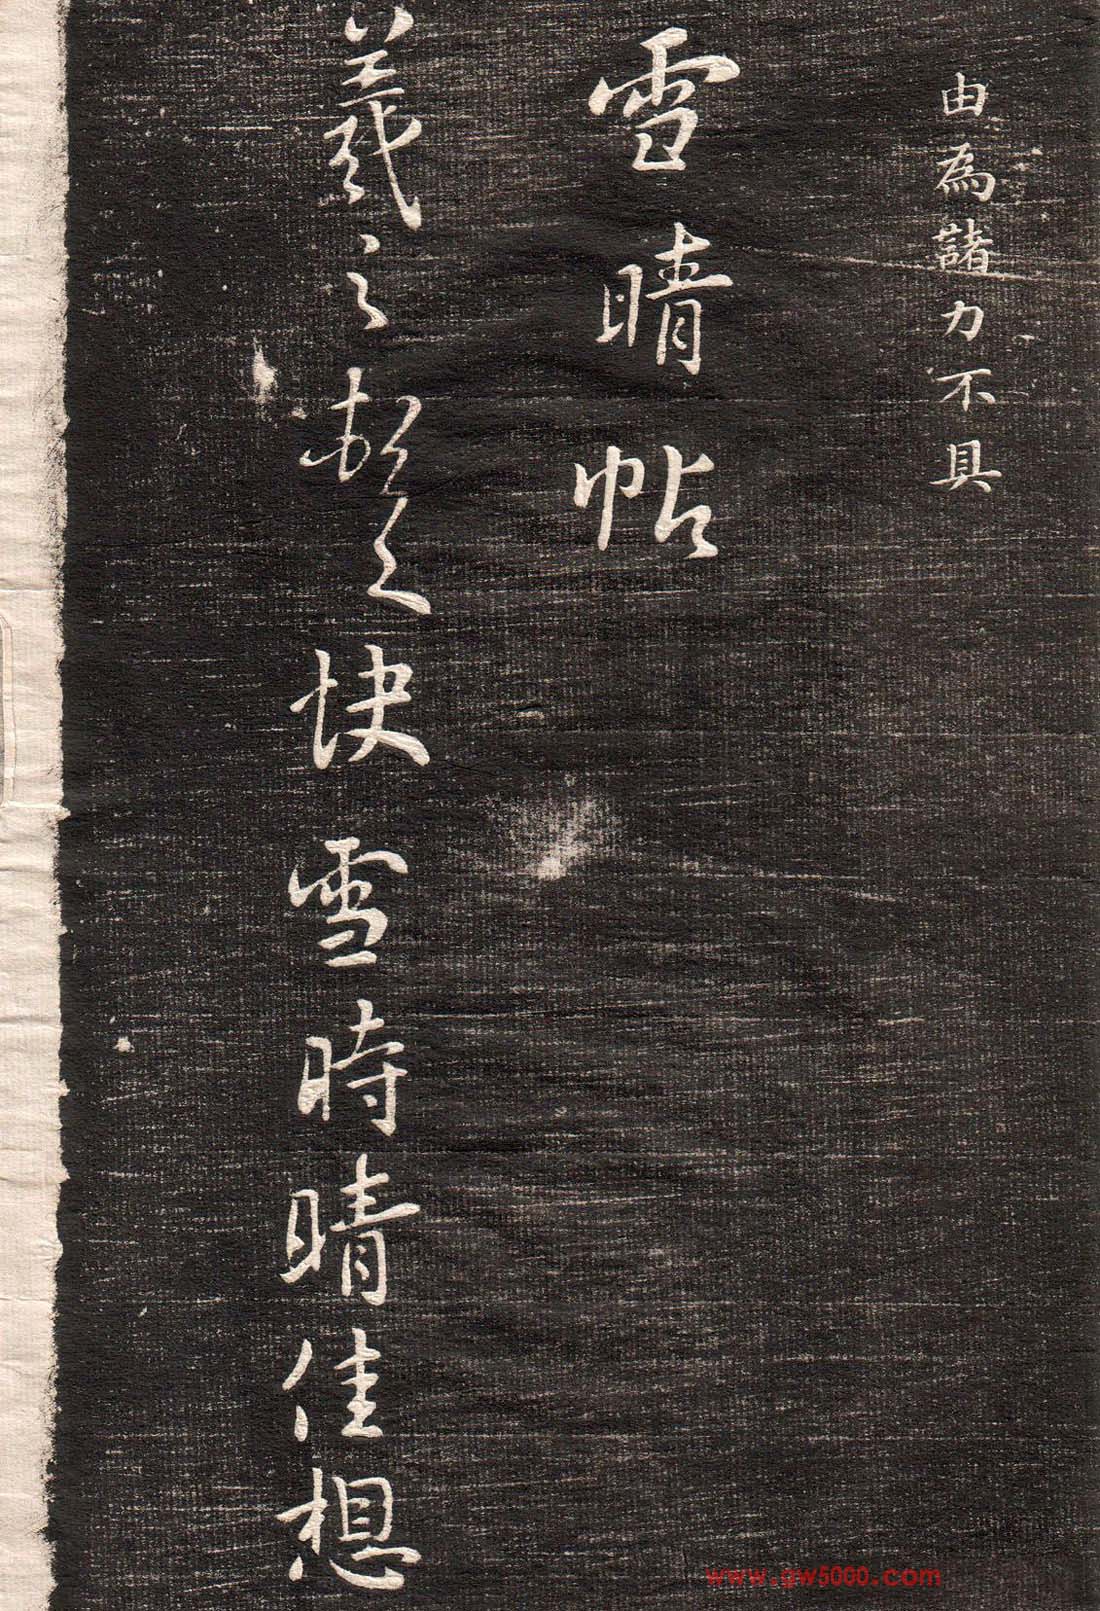 由為諸力不具
雪晴帖
羲之頓首快雪時晴佳想
www.gw5000.com